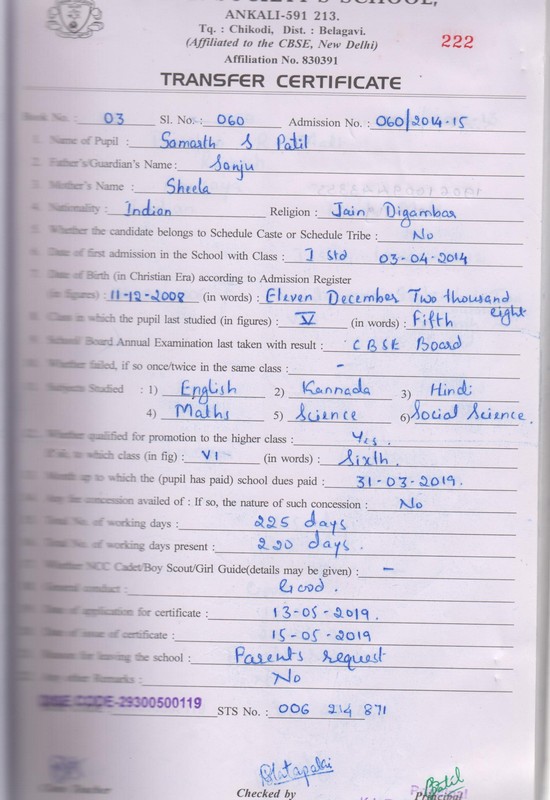 SOCIETY'S SCHOOL,
ANKALI-591 213.
Tq. : Chikodi, Dist. : Belagavi.
(Affiliated to the CBSE, New Delhi)
222
Affiliation No. 830391
TRANSFER CERTIFICATE
Book No. : 03 Sl. No. : 060 Admission No. : 060/2014-15
1. Name of Pupil : Samarth S Patil
2. Father's/Guardian's Name : Sanju
3. Mother's Name : Sheela
4. Nationality : Indian Religion : Jain Digambar
5. Whether the candidate belongs to Schedule Caste or Schedule Tribe : No
6. Date of first admission in the School with Class : I Std 03-04-2014
7. Date of Birth (in Christian Era) according to Admission Register
(in figures) : 11-12-2008 (in words) : Eleven December Two thousand eight
8. Class in which the pupil last studied (in figures) : V (in words) : Fifth
9. School/ Board Annual Examination last taken with result : CBSE Board
10. Whether failed, if so once/twice in the same class : -
11. Subjects Studied : 1) English 2) Kannada 3) Hindi
4) Maths 5) Science 6) Social Science.
12. Whether qualified for promotion to the higher class : Yes.
If so, to which class (in fig) : VI (in words) : Sixth.
13. Month up to which the (pupil has paid) school dues paid : 31-03-2019.
14. Any fee concession availed of : If so, the nature of such concession : No
15. Total No. of working days : 225 days
16. Total No. of working days present : 220 days.
17. Whether NCC Cadet/Boy Scout/Girl Guide(details may be given) : -
18. General conduct : Good.
19. Date of application for certificate : 13-05-2019.
20. Date of issue of certificate : 15-05-2019
21. Reason for leaving the school : Parents request
22. Any other Remarks : No
DISE CODE-29300500119
STS No. : 006 214 871
Class Teacher
Checked by
Principal